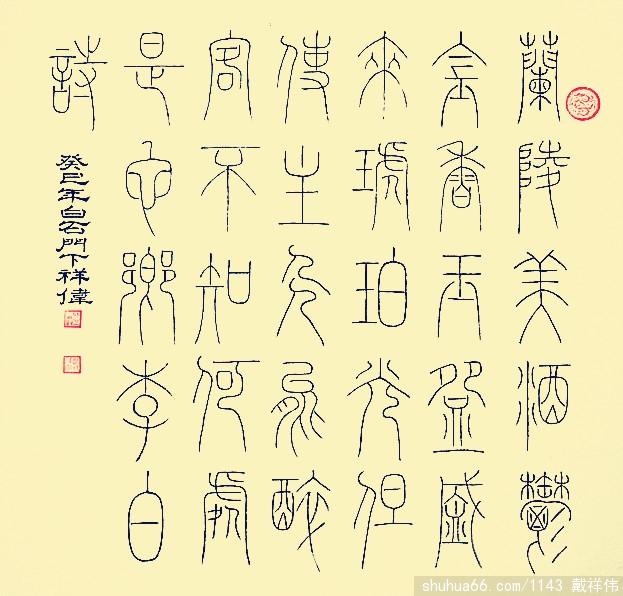 蘭陵美酒鬱
金香玉盌盛
來琥珀光但
使主人能醉
客不知何處
是它鄉李白
詩
癸巳年白公門下祥偉
shuhua66.com/1143 戴祥伟